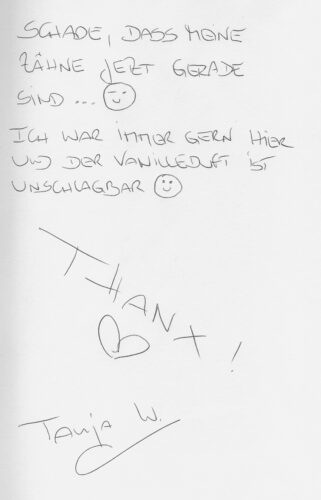 SCHADE, DASS MEINE
ZÄHNE JETZT GERADE
SIND ... 😉
ICH WAR IMMER GERN HIER
UND DER VANILLEDUFT IST
UNSCHLAGBAR 🙂
THANX!
Tanja W.